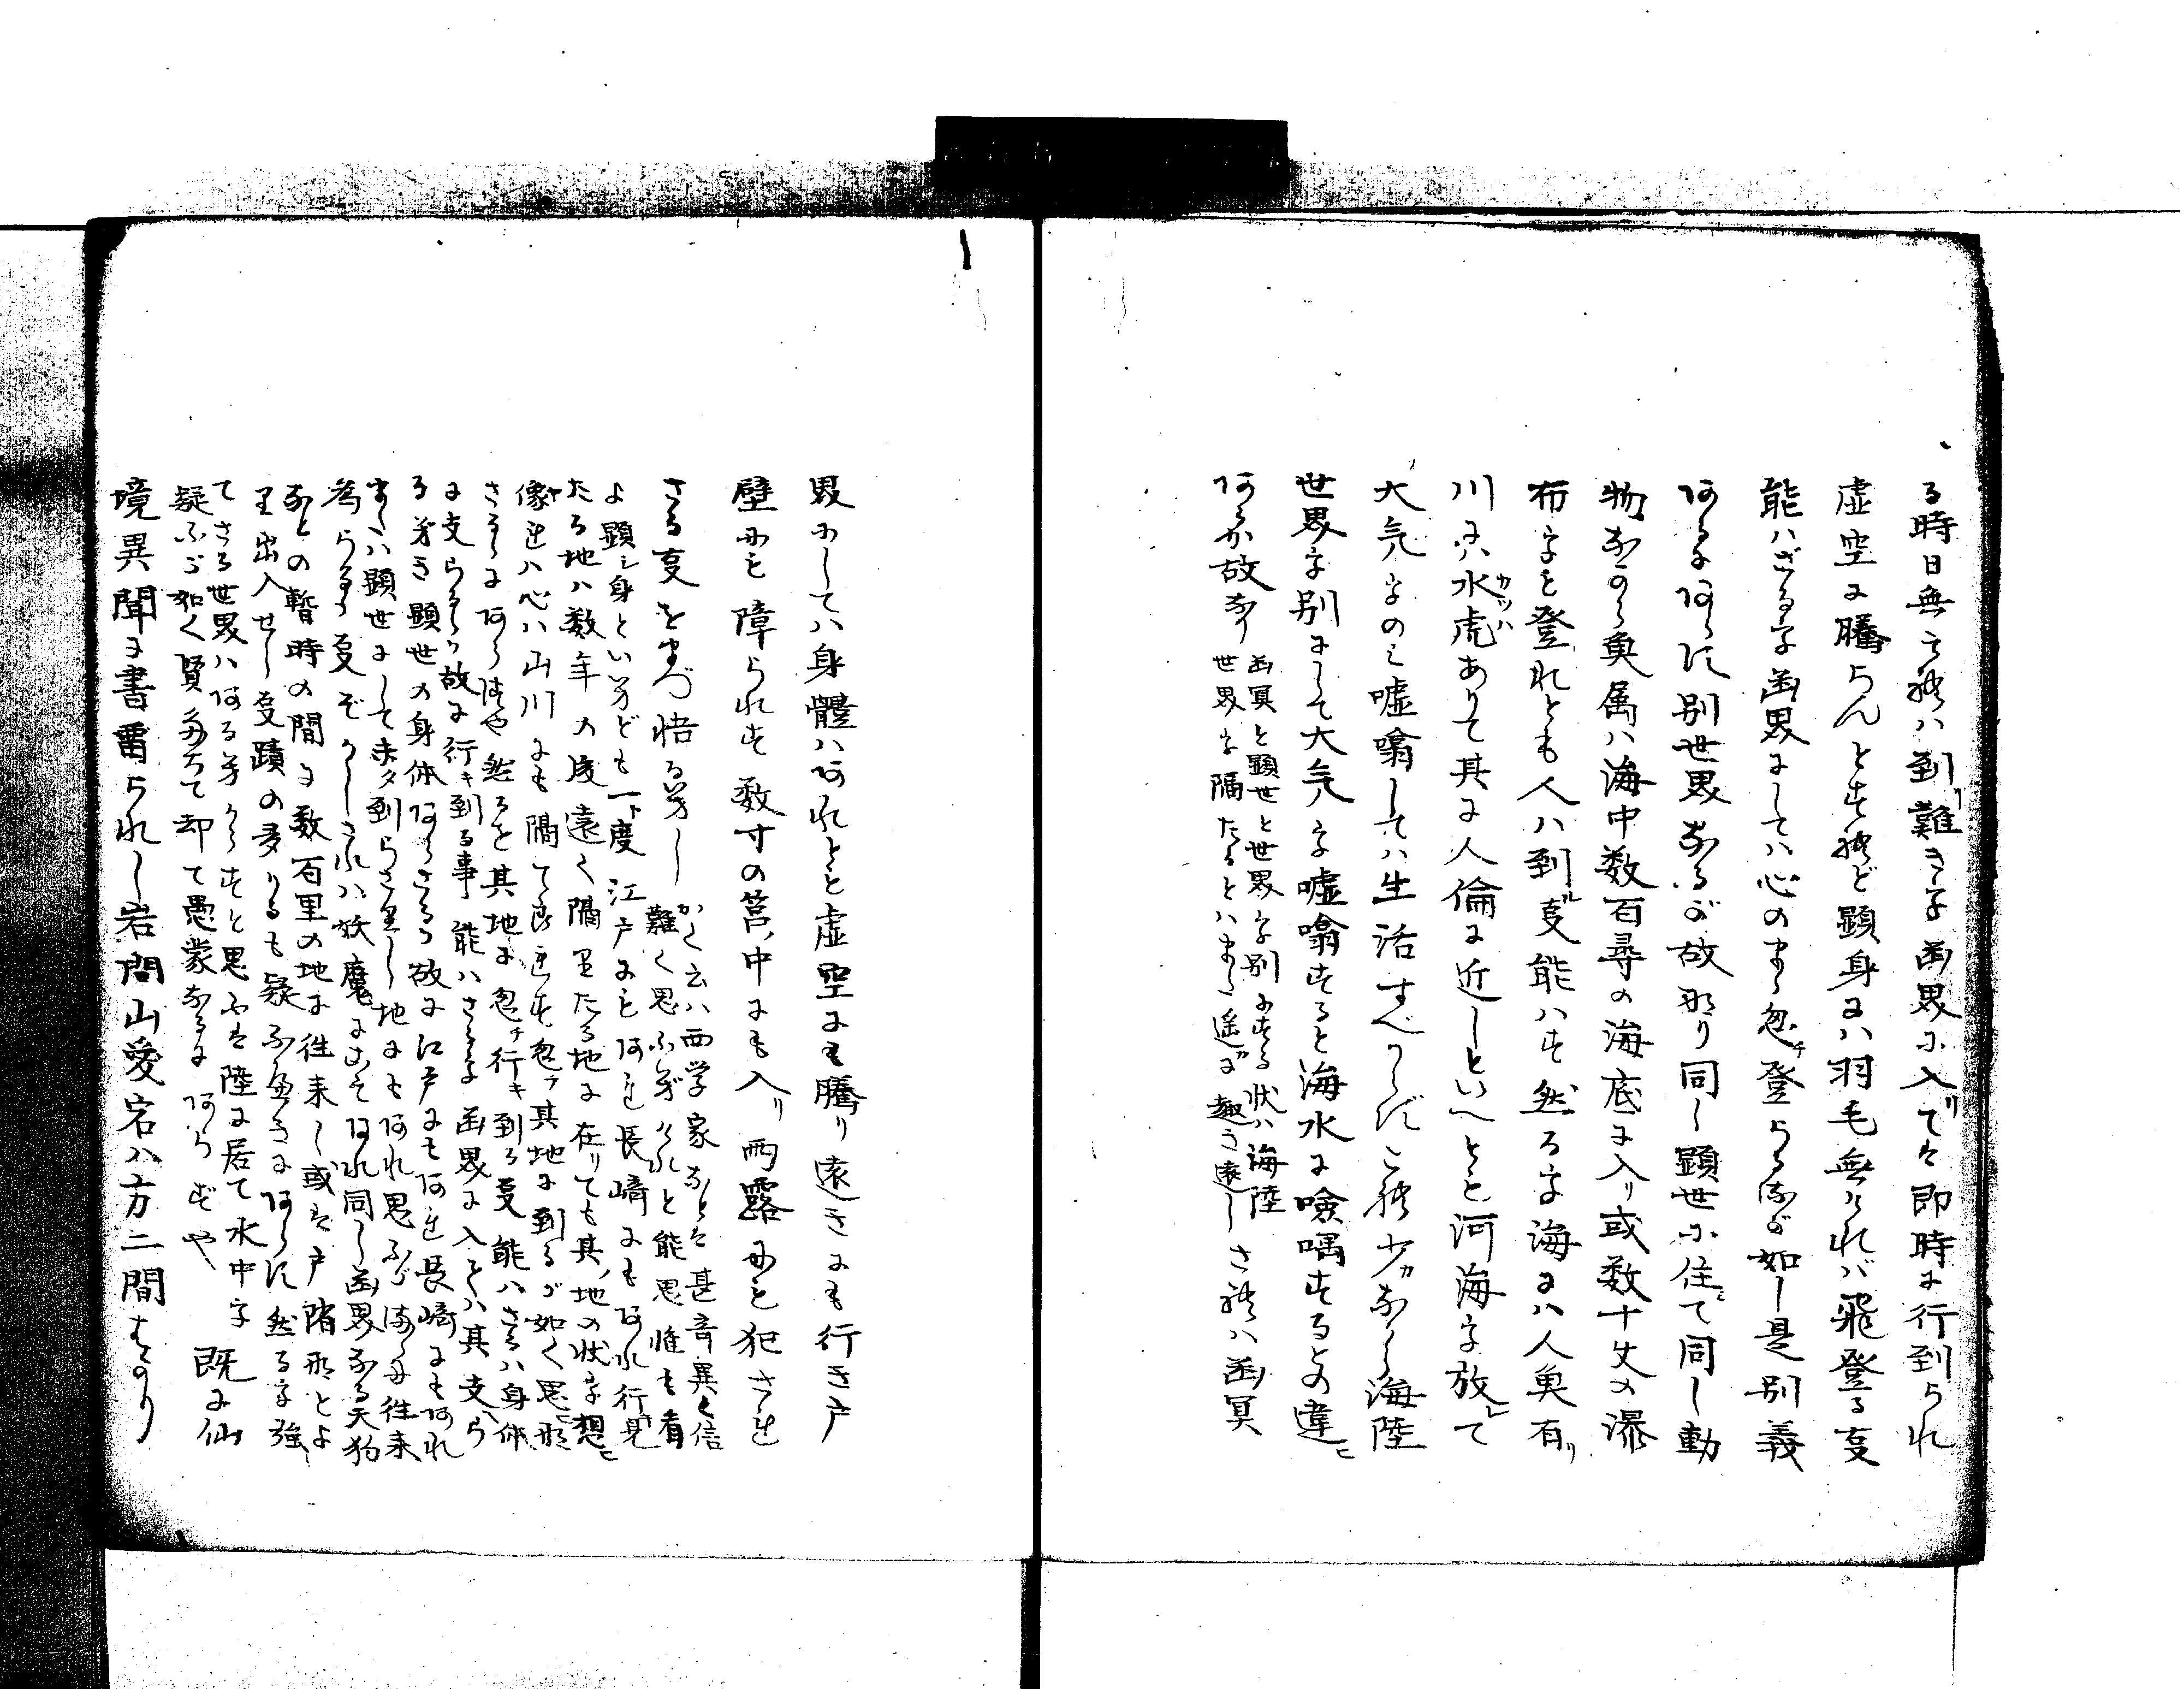 る時日無き程ハ到リ難きを幽界に入リてハ即時に行到られ
虚空に騰らんとすれど顕身にハ羽毛無けれバ飛登る事
能ハざるを幽界にしてハ心のまゝ忽チ登らるるが如し是別義
あるにあらず別世界なるが故なり同し顕世に住て同し動
物ながら魚属ハ海中数百尋の海底に入リ或数十丈の瀑
布をも登れとも人ハ到ル事能ハず然るを海にハ人魚有リ
川にハ水虎ありて其に人倫に近しといへとも河海を放レて
大気をのミ嘘噏してハ生活すべからずこハ少カながら海陸
世界を別にして大気を嘘噏すると海水に噞喁するとの違ヒ
あるか故なり
幽冥と顕世と世界を別にする状ハ海陸
世界を隔たるとハまた遥に趣き遠し
されハ幽冥
界にしてハ身體ハあれとも虚空にも騰り遠きにも行き戸
壁にも障られず数寸の筥ノ中にも入リ雨露にも犯されず
さる事をまづ悟るべし
かく云ハ西学家なとハ甚奇異く信
難く思ふべけれと能思惟も看
よ顕シ身といへども一ト度江戸にもあれ長崎にもあれ行見
たる地ハ数年の後遠く隔りたる地に在りても其ノ地の状を想ヒ
像れハ心ハ山川にも隔て られず忽チ其地に到るが如く思ヒ形
さるにあらずや然るを其地に忽チ行キ到る事能ハさるハ身体
に支らるゝ故に行キ到る事能ハさるを幽界に入てハ其支ヘら
るべき顕世の身体あらさる故に江戸にもあれ長崎にもあれ
まゝハ顕世にして未タ到らさりし地にもあれ思ふがまゝに往来
為らるゝ事ぞかしされハ妖魔にこそあれ同し幽界なる天狗
なとの暫時の間に数百里の地に往来し或ハ戸隙形とよ
り出入せし事蹟の多かるも疑ふべきにあらず然るを強
てさる世界ハあるべからずと思ふハ陸に居て水中を
疑ふが如く賢気て却て愚蒙なるにあらずや
既に仙
境異聞に書留られし岩間山愛宕ハ方二間はかり